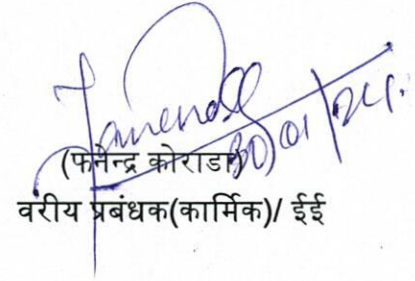 30/01/24.
(फनेन्द्र कोराडा)
वरीय प्रबंधक(कार्मिक)/ ईई